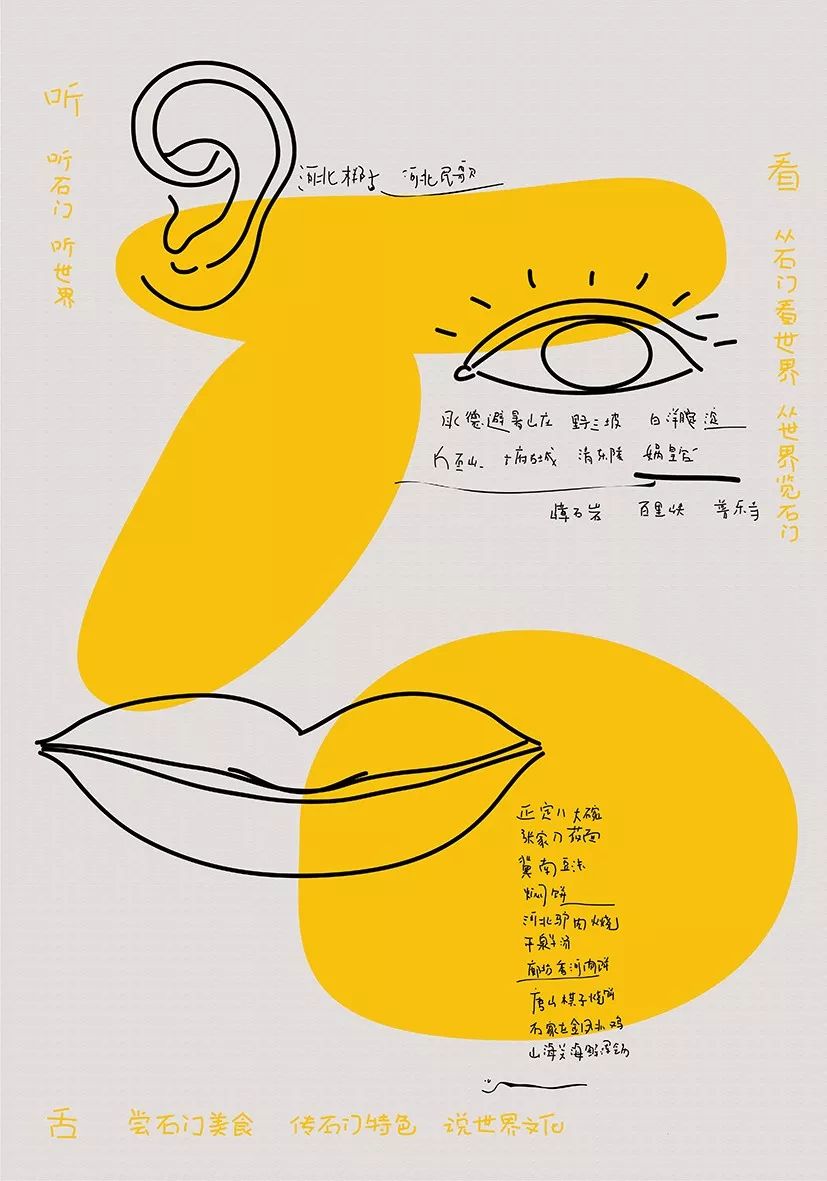 听
听石门 听世界
河北梆子 河北民歌
看
从石门看世界 从世界览石门
承德避暑山庄 野三坡 白洋淀
清东陵 娲皇宫
嶂石岩 百里峡 普乐寺
正定八大碗
张家口莜面
冀南豆沫
焖饼
河北驴肉火烧
廊坊香河肉饼
唐山棋子烧饼
石家庄金凤扒鸡
山海关海鲜浑锅
舌 尝石门美食 传石门特色 说世界文化